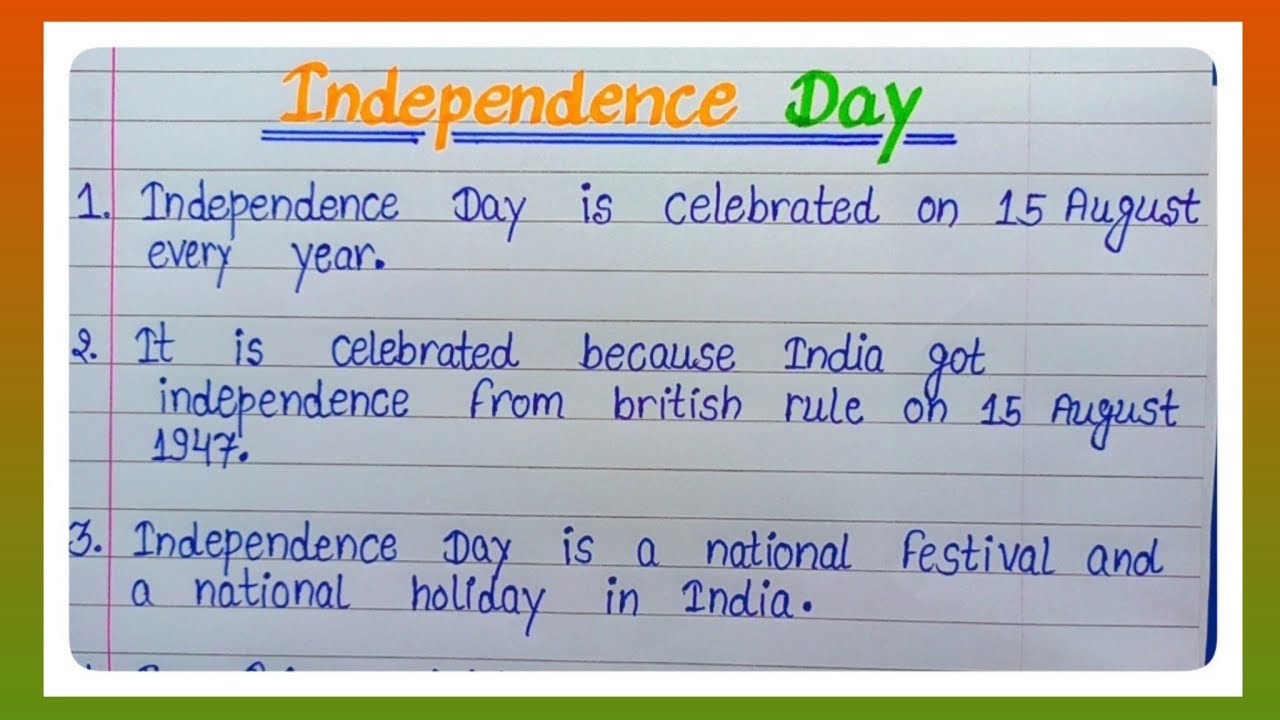 Independence Day
1. Independence Day is celebrated on 15 August
every year.
2. It is celebrated because India got
independence from british rule on 15 August
1947.
3. Independence Day is a national festival and
a national holiday in India.